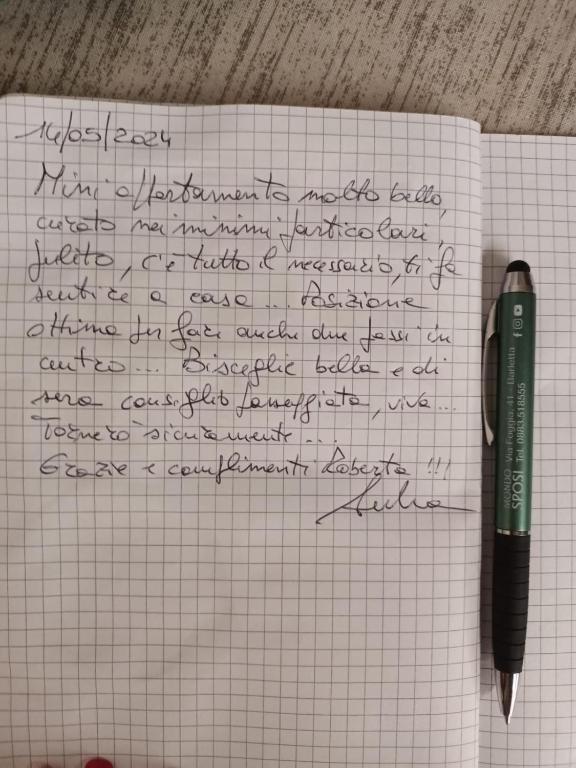 14/05/2024
Mini appartamento molto bello,
curato nei minimi particolari,
pulito, c'è tutto il necessario, ti fa
sentire a casa... Posizione
ottima per fare anche due passi in
centro... Bisceglie bella e di
sera consiglio passeggiata, viva...
Tornerò sicuramente...
Grazie e complimenti Roberta !!!
MONDO SPOSI
Via Foggia, 41 - Barletta
Tel. 0883.518555